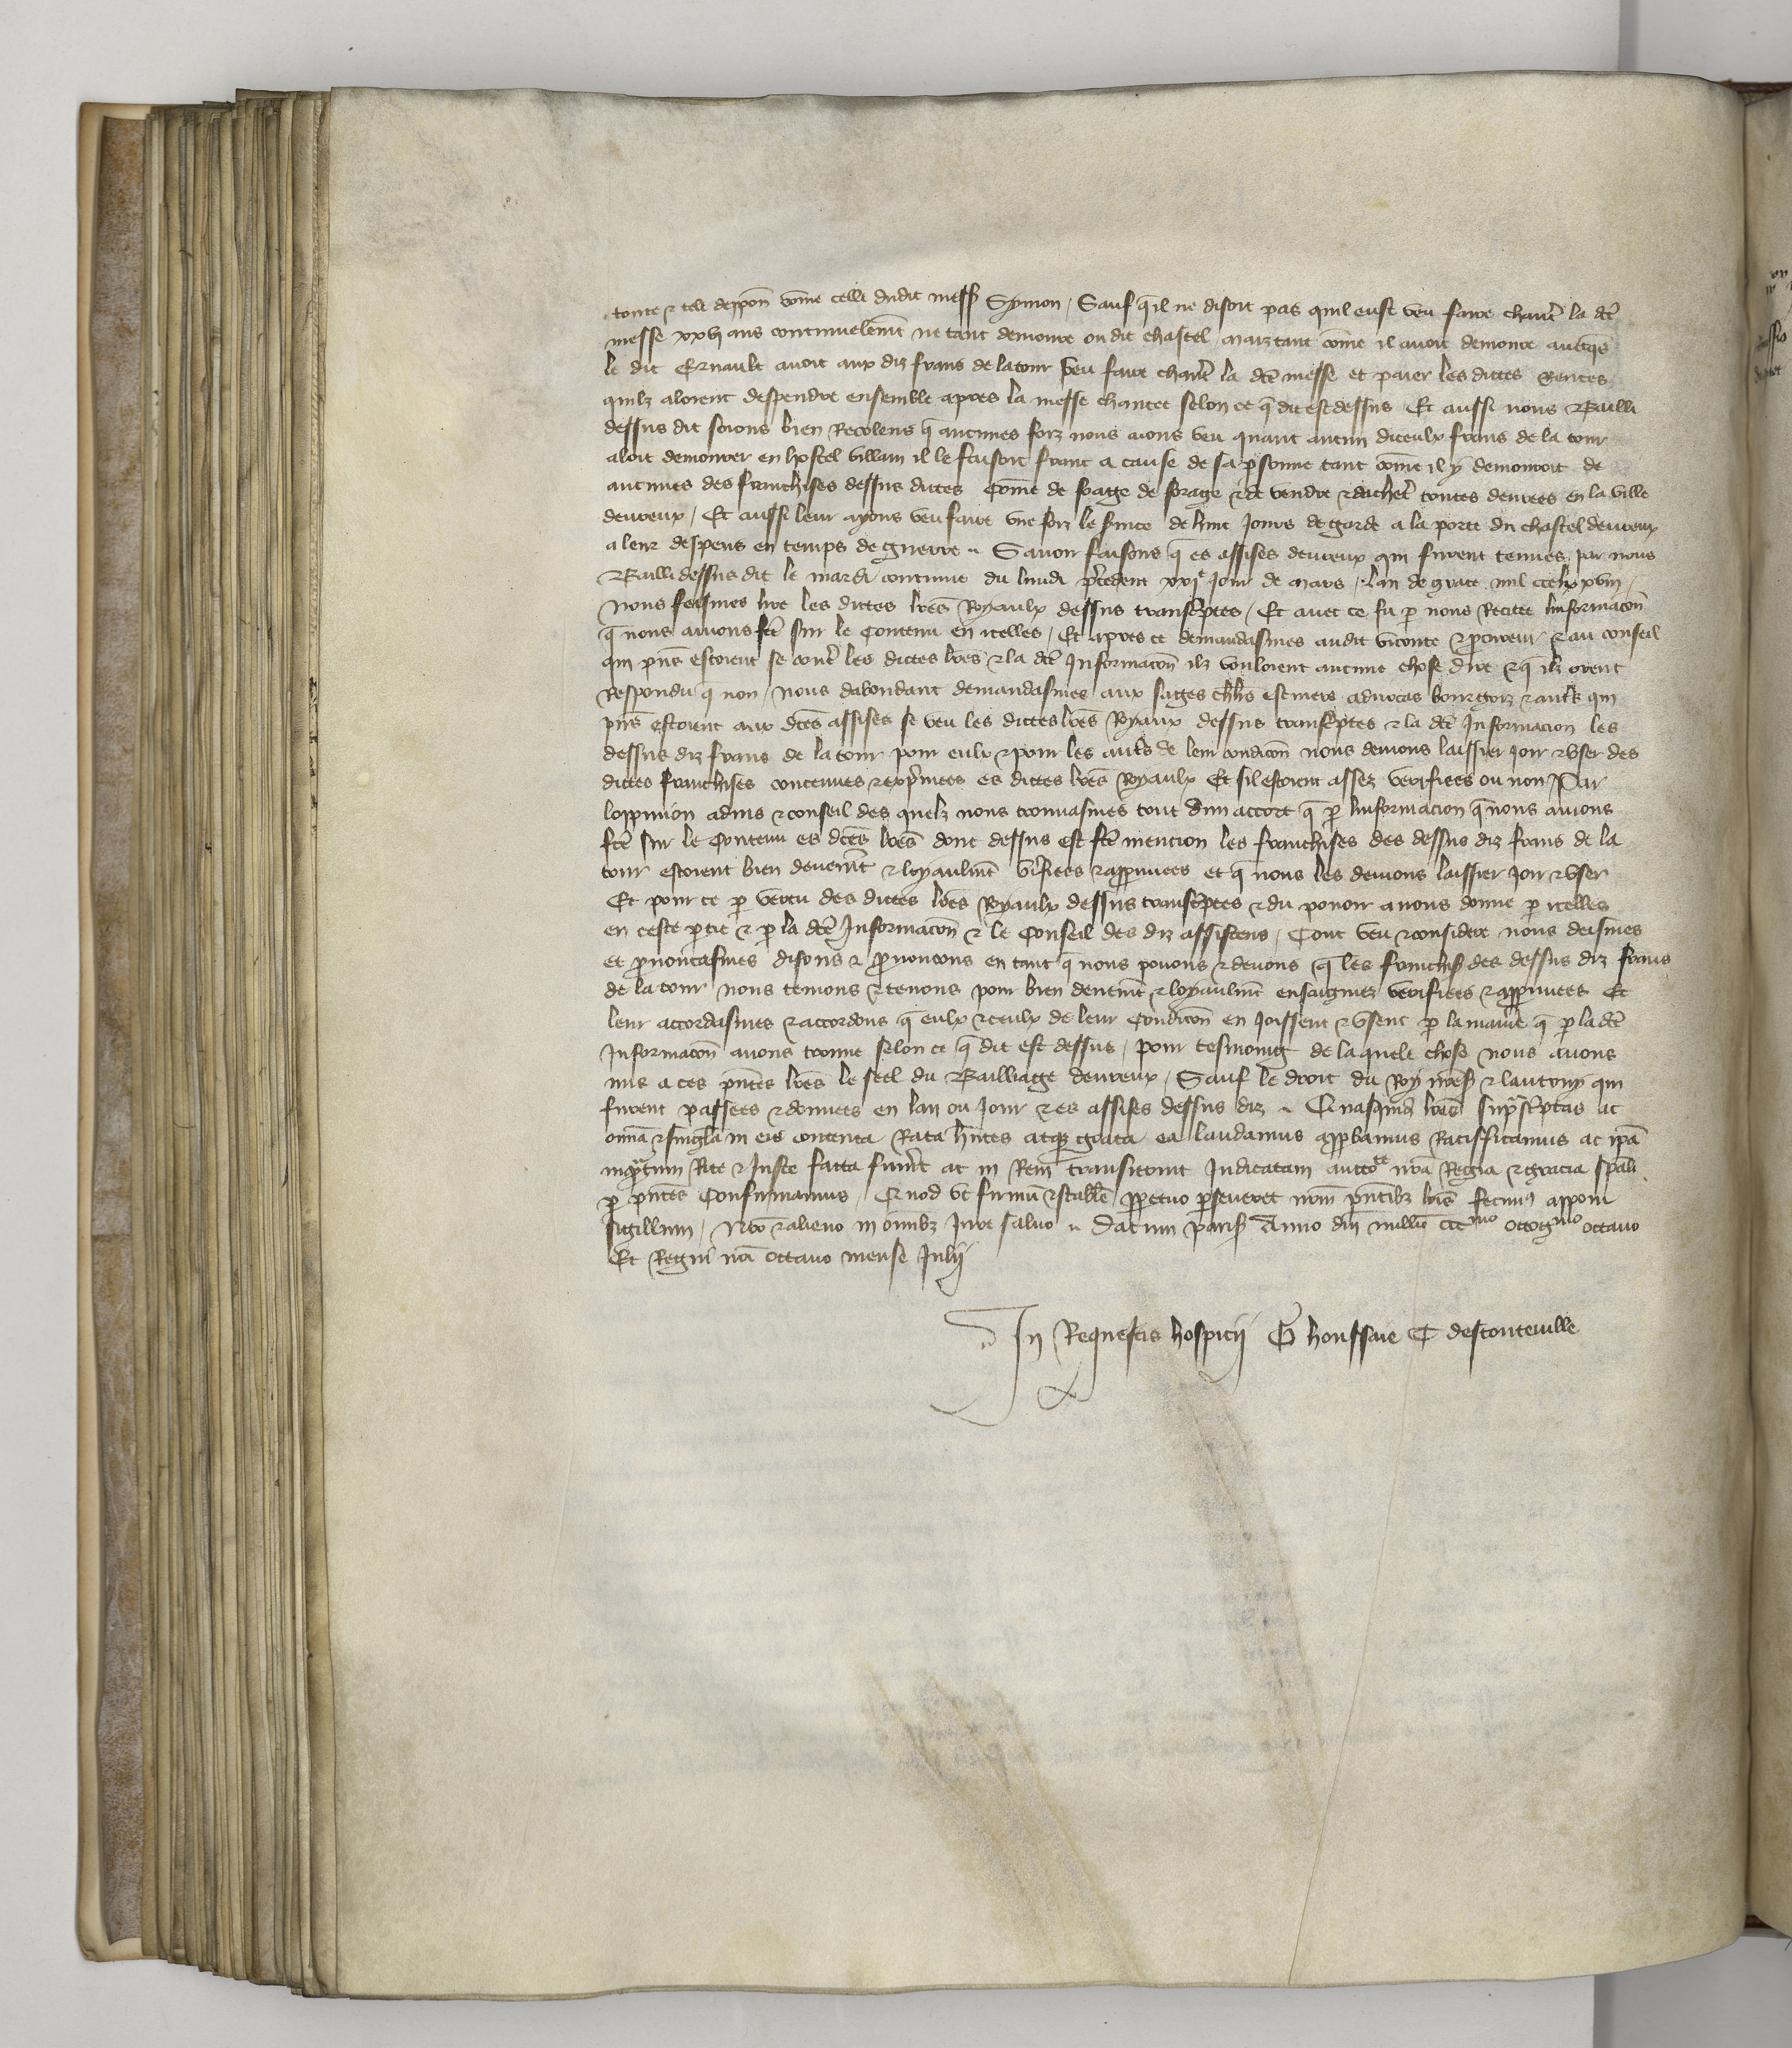 toute & tele deppon come celli dudit mess Symon / Sauf q̃ il ne disoit pas quil eust veu faire chant̃ la dc̃e
messe xxvj ans continuelemt̃ ne tant demoure ou dit chastel / maiz tant come il avoit demoure avecq̃s
le dit Ernault avoit aux diz frans de la tour veu faire chant̃ la dc̃e messe et paier les dictes Rentes
quilz aloient despendre ensemble apres la messe chantee selon ce q̃ dit est dessus Et aussi nous Bailli
dessus dit soions bien Recolens q̃ aucunes foiz nous aions veu quant aucun diceulx frans de la tour
aloit demourer en hostel villain il le faisoit franc a cause de sa p̃sonne tant come il y demouroit de
aucunes des franchises dessus dictes Come de foage de forage & de vendre & dachet̃ toutes denrees en la ville
deureux / Et aussi leur ayons veu faire une foiz le s̃vice de huit Jours de garde a la porte du chastel deureux
a leur despens en temps de guerre Savoir faisons q̃ es assises deureux qui furent tenues par nous
Bailli dessus dit le mardi continue du lundi p̃cedent xxje Jour de mars / lan de grace mil ccclxxviij /
Nous feismes lire les dictes lrẽs Royaulx dessus transc̃ptes / Et avec ce fu p̃ nous Recitee linformacoñ
q̃ nous avions fc̃e sur le Contenu en icelles / Et apres ce demandasmes audit viconte & p̃cureur & au conseil
qui p̃ns estoient se cont̃ les dictes lrẽs & la dc̃e Informacoñ ilz vouloient aucune chose dire & q̃ ilz orent
Respondu q̃ non / Nous dabondant demandasmes aux sages chlr̃s escuiers advocas bourgoiz & autr̃s qui
p̃ns estoient aux dc̃es assises se veu les dictes lrẽs Royaux dessus transc̃ptes & la dc̃e Informacion les
dessus diz frans de la tour pour eulx & pour les autr̃s de leur condicoñ nous devions laissier joir & user des
dictes franchises contenues & exp̃mees es dictes lrẽs Royaulx Et sil estoient assez verifiees ou non Par
loppinion advis & conseil des quelz nous trouvasmes tout dun accort q̃ p̃ linformacion q̃ nous avions
fc̃e sur le Contenu es dc̃es lrẽs dont dessus est fc̃e mencion les franchises des dessus diz frans de la
tour estoient bien deuemt̃ & loyaulmt̃ ṽifiees & app̃uvees et q̃ nous les devions laissier joir & user
Et pour ce p̃ vertu des dictes lrẽs Royaulx dessus transc̃ptes & du povoir a nous donne p̃ icelles
en ceste p̃tie & p̃ la dc̃e Informacoñ & le Conseil des diz assistens / Tout veu & considere nous deismes
et p̃noncasmes disons & p̃noncons en tant q̃ nous povons & devons q̃ les franchis̃ des dessus diz frans
de la tour nous tenions & tenons pour bien deuemt̃ & loyaulmt̃ enseignez verifiees & app̃uvees Et
leur accordasmes & accordons q̃ eulx & ceulx de leur Condicoñ en joissent & usent p̃ la manie q̃ p̃ la dc̃e
Informacoñ avons trouve selon ce q̃ dit est dessus / pour tesmoing de laquele chose nous avons
mis a ces p̃ntes lrẽs le seel du Bailliage deureux / Sauf le droit du Roy nr̃e s̃ & lautruy qui
furent passees & donnees en lan ou Jour & es assises dessus diz Quasquid̃ lrãs sup̃sc̃ptas ac
om̃ia & sing̃la in eis contenta Rata hñtes atqz grata ea laudamus app̃bamus Ratifficamus ac ip̃a
inq̃tum Rite & Juste facta fuer̃t ac in Rem transierunt Judicatam auctote nr̃a Regia & gracia sp̃ali
p̃ p̃ntes Confirmamus / Quod ut firmũ & stabile p̃petuo p̃severet nr̃m p̃ntibz lrĩs fecimus apponi
sigillum / Nr̃o & alieno in om̃ibz Jure salvo Datum parisꝰ Anno dñi millio cccmo octogmo octavo
Et Regni nr̃i octavo mense Julij
In Requestis hospicij G houssaie T destouteville